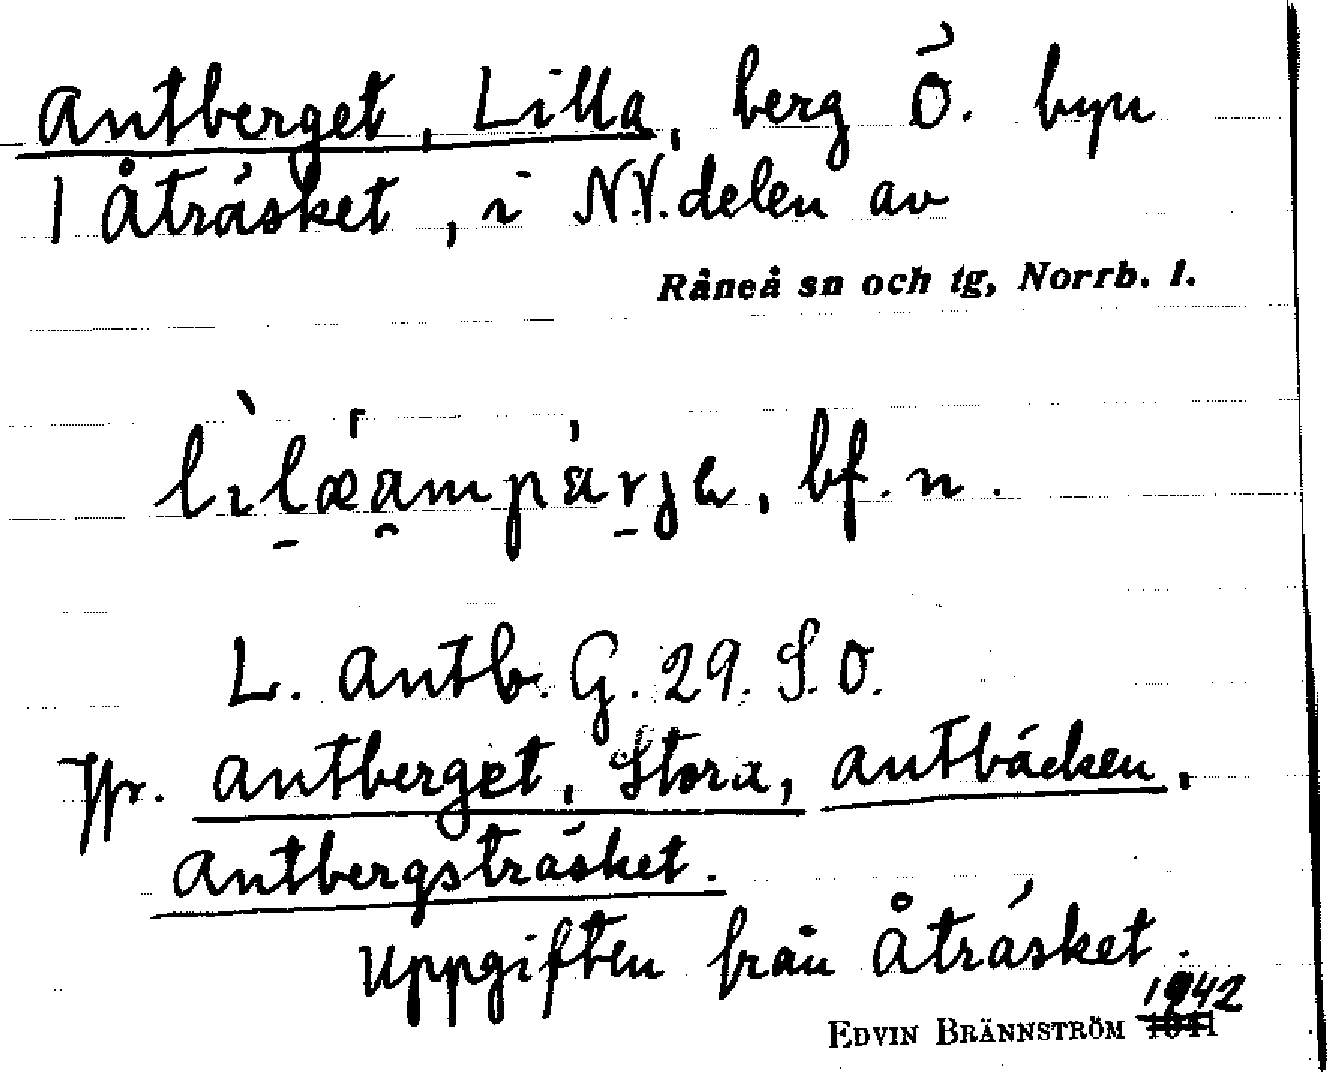 Antberget, Lilla, berg Ö. byn
1 Åträsket, i N.V. delen av
Råneå sn och tg, Norrb. l.
bf. n.
L. Antb. G. 29. S.O.
Jfr. Antberget, Stora, Antbäcken,
Antbergsträsket.
Uppgiften från Åträsket.
1942
EDVIN BRÄNNSTRÖM 1941